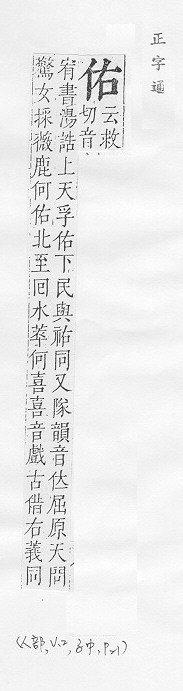 正字通
佑
云救
切音
宥書湯誥上天孚佑下民與祐同又隊韻音屈原天問
驚女採薇鹿何佑北至回水萃何喜喜音戲古借右義同
(人部, V.2, 子中, P.21)